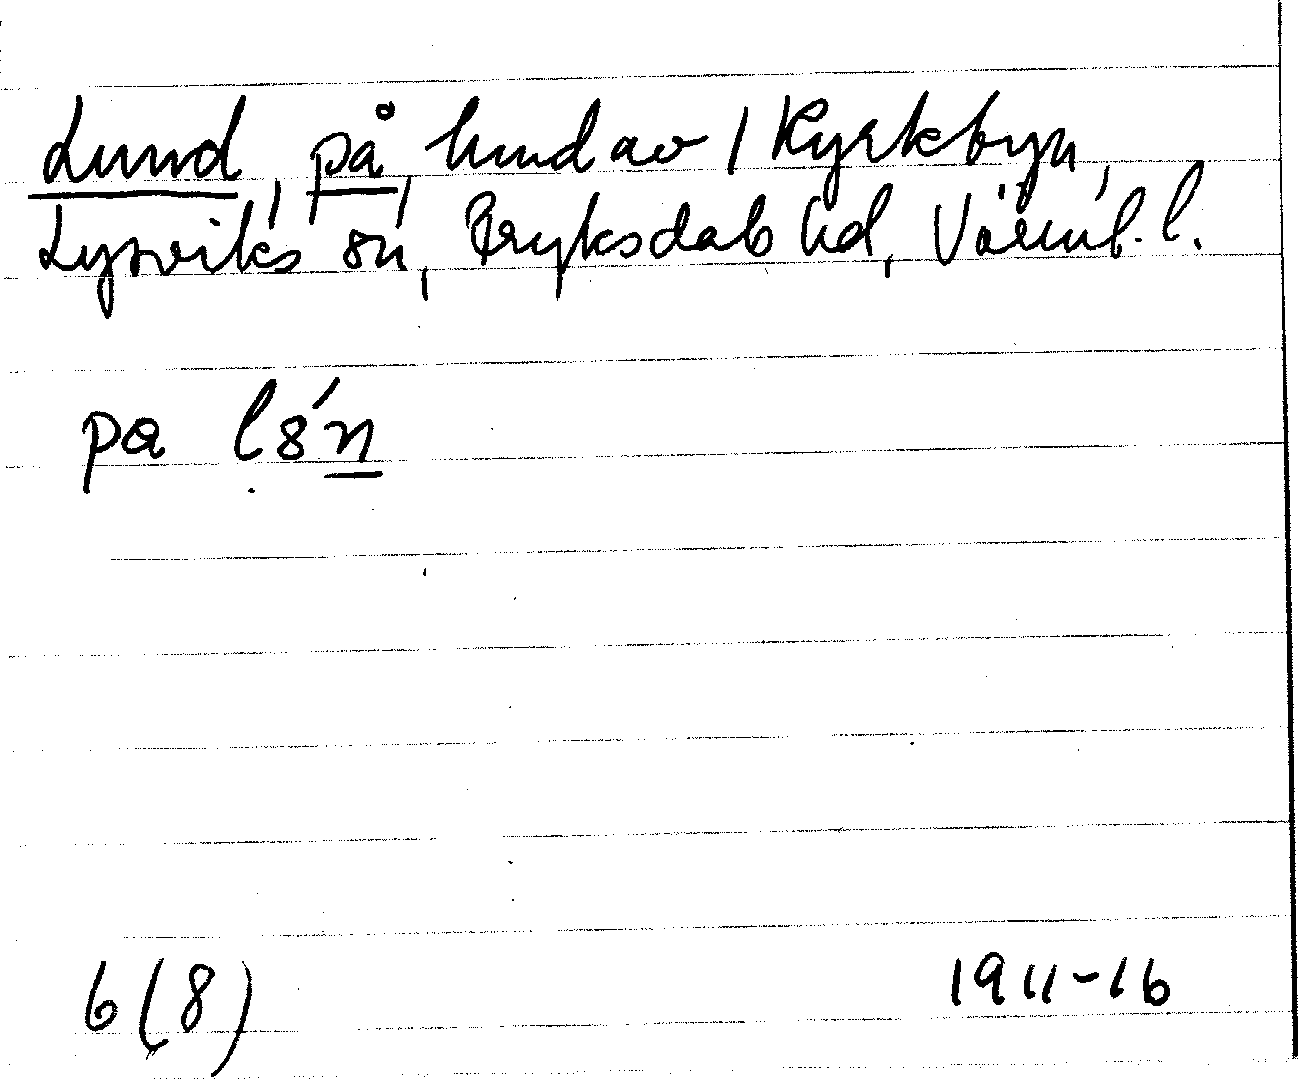 Lund, på, hmd av 1 Kyrkbyn,
Lysviks sn, Fryksdals hd, Värml. l.
pa l8́n
6 (8)
1911-16